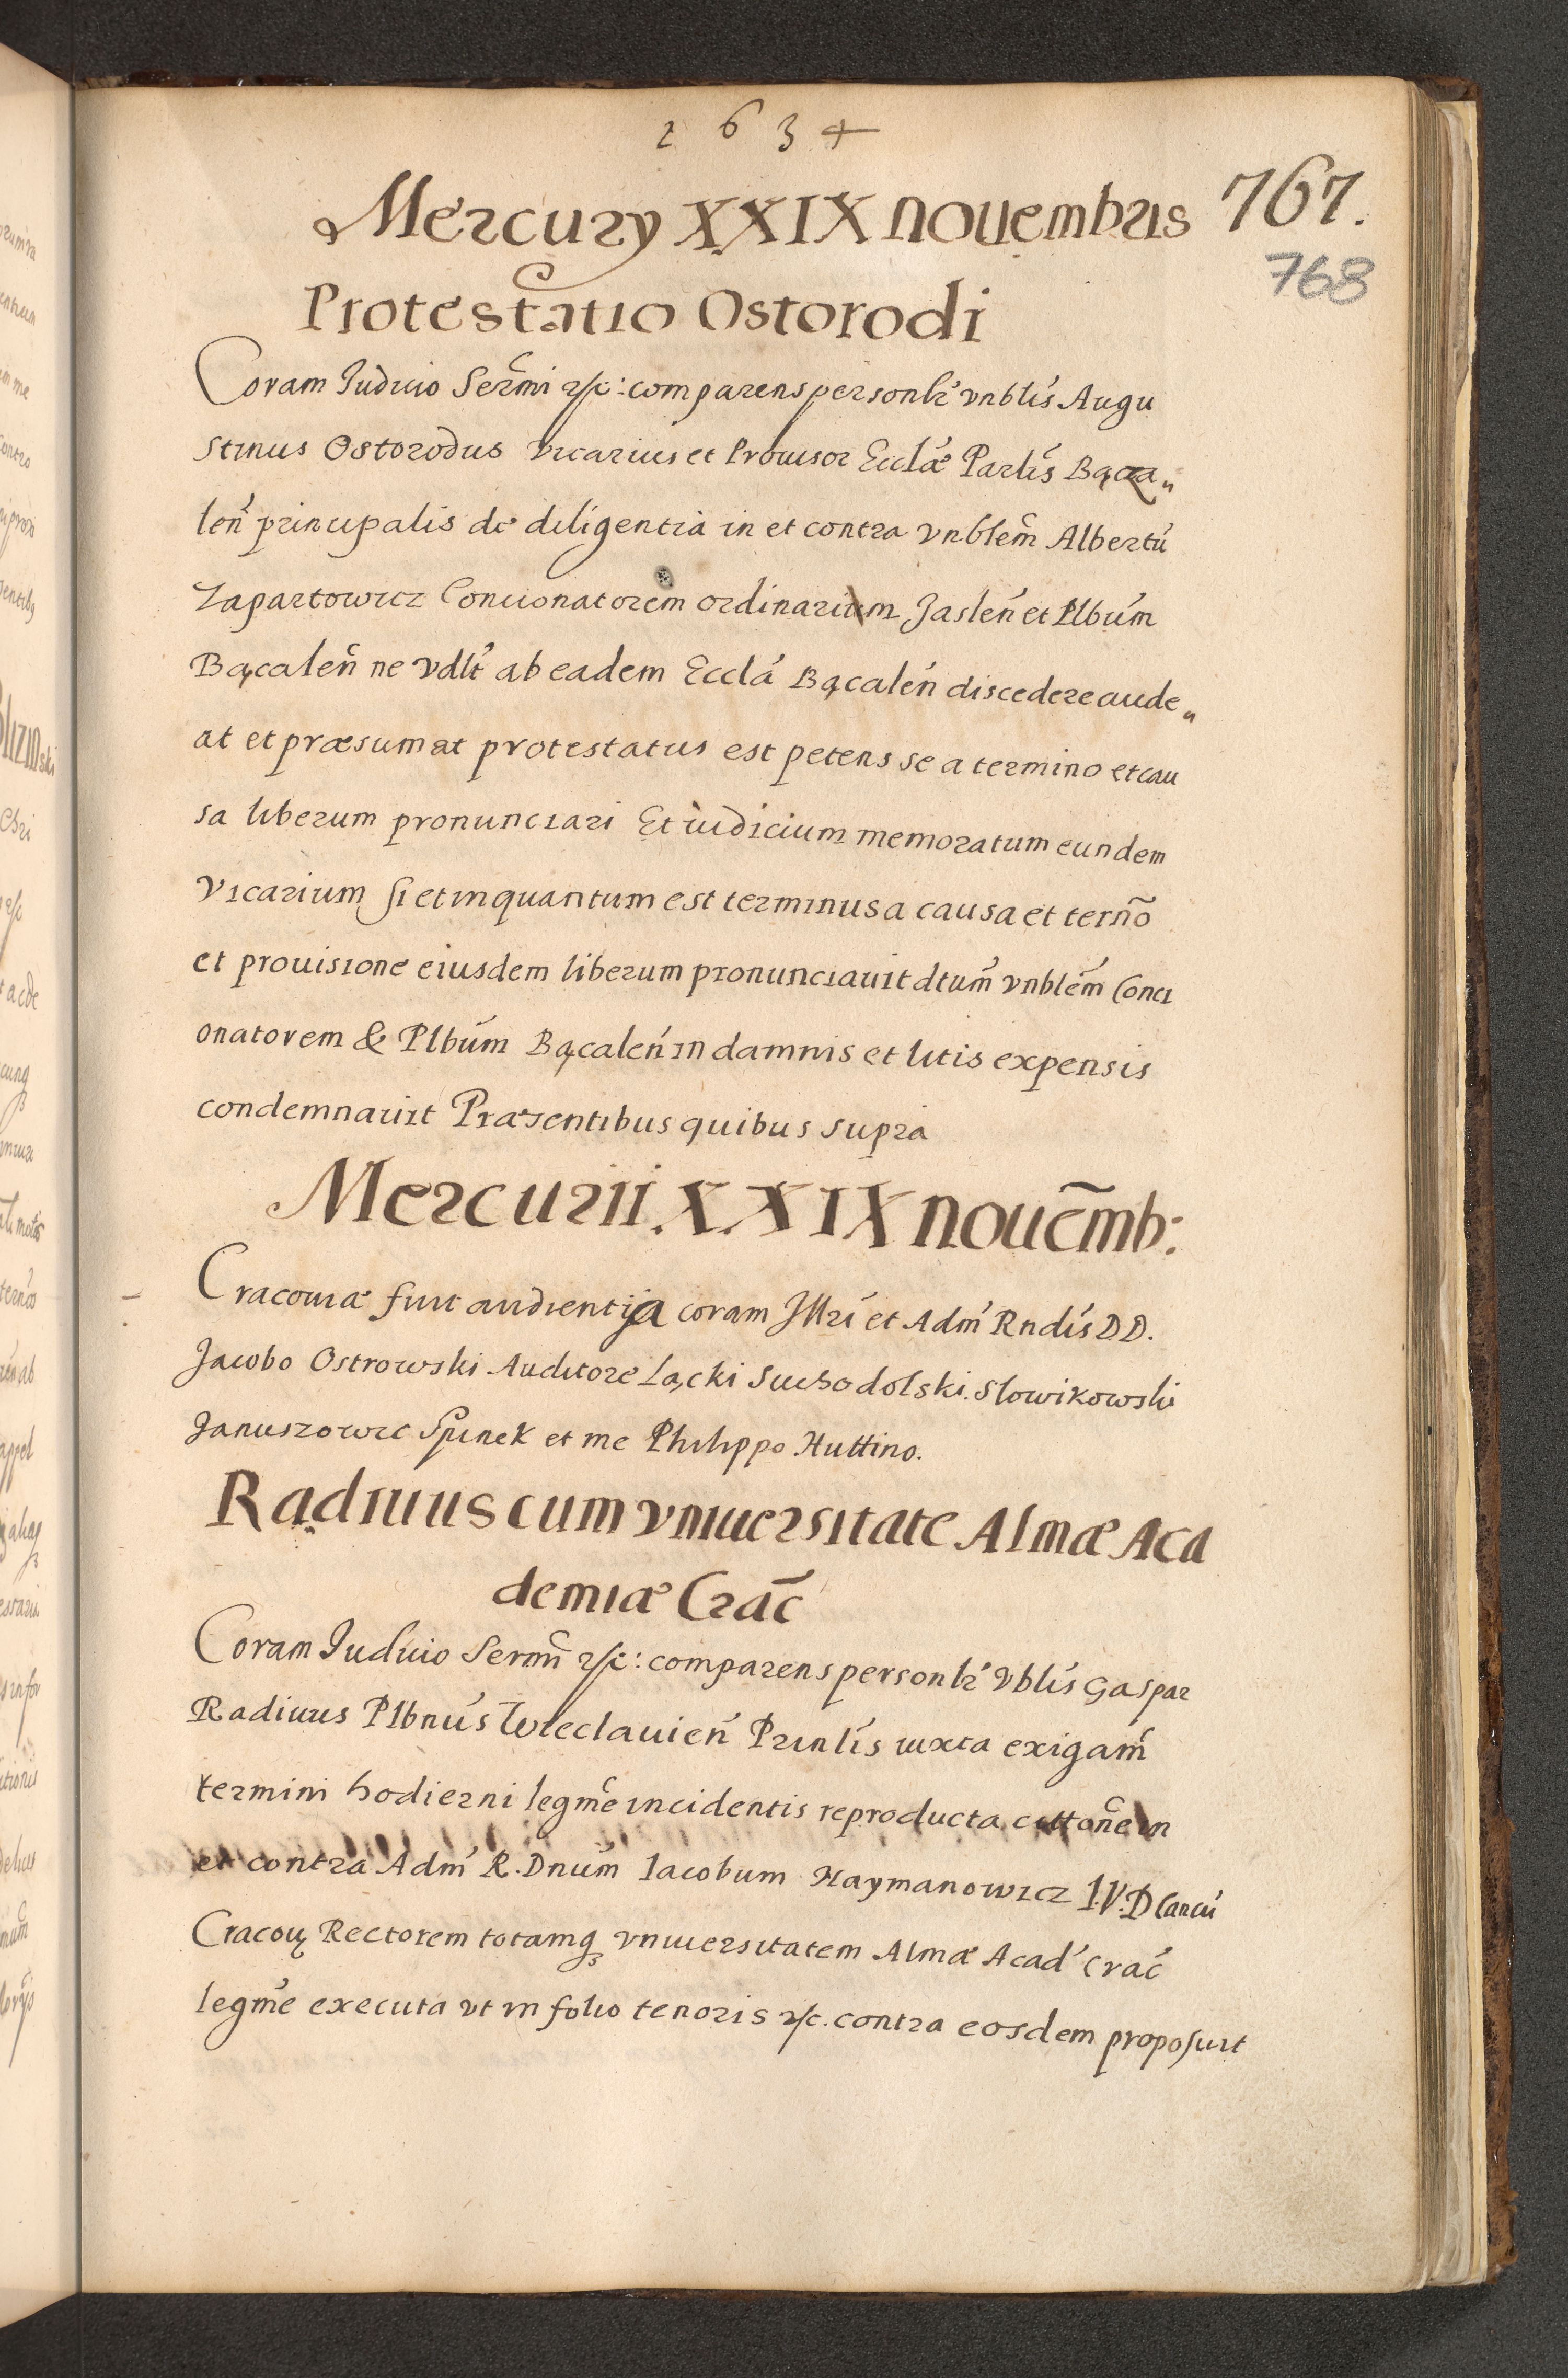 1634
Mercurÿ XXIX Nouembris 767.
768
Protestatio Ostorodi
Coram Iudicio Sermi &c: comparens personlr vnblis Augu
stinus Ostorodus Vicarius et Prouisor Ecclæ Parlis Bącza„
len principalis de diligentia in et contra vnblem Albertu
Zapartowicz Concionatorem ordinarium Jaslen et Plbum
Bącalen ne vdlt ab eadem Eccla Bącalen discedere aude„
at et præsumat protestatus est petens se a termino et cau
sa liberum pronunciari Et iudicium memoratum eundem
Vicarium si et inquantum est terminus a causa et terno
et prouisione eiusdem liberum pronunciauit dtum vnblem Conci
onatorem & Plbum Bącalen in damnis et litis expensis
condemnauit Præsentibus quibus supra
Mercurii XXIX Nouemb:
Cracouiæ fuit audientia coram Illri et Adm Rndis DD.
Jacobo Ostrowski Auditore Łącki Suchodolski. Slowikowski
Januszowic Spinek et me Philippo Huttino.
Radiuius cum vniuersitate Almæ Aca
demiæ Crac
Coram Iudicio Sermi &c: comparens personlr vblis Gaspar
Radiuius Plbnus Wieclauien Prinlis iuxta exigam
termini hodierni legme incidentis reproducta cittone in
et contra Adm R. Dnum Iacobum Haymanowicz I.V.D Cancu
Cracou Rectorem totamq vniuersitatem Almæ Acad Crac
legme executa vt in folio tenoris &c. contra eosdem proposuit